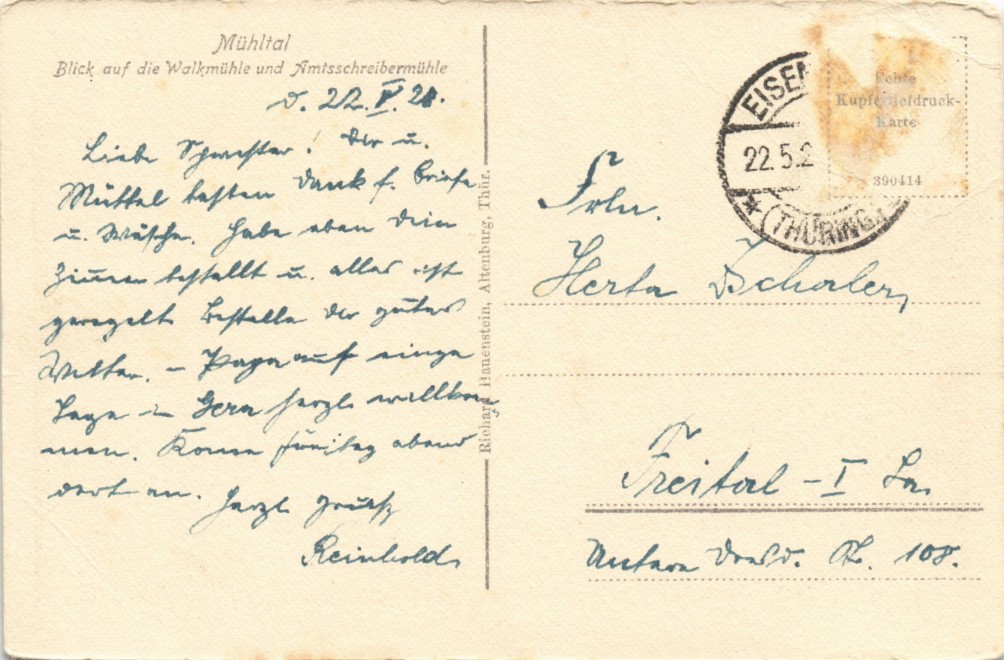 Mühltal
Blick auf die Walkmühle und Amtsschreibermühle
d. 22. V. 28.
Liebe Schwester! Dir u.
Müttel besten Dank f. Briefe
u. Wäsche. Habe eben Dein
Zimmer bestellt u. alles ist
geregelt. Bestelle Dir gutes
Wetter. – Papa auf einige
Tage in Gera herzl. willkom-
men. Komme Freitag abend
dort an. Herzl. Grüße
Reinhold
Richard Hauenstein, Altenburg, Thür.
EISEN
22.5.2
(THÜRING.)
Echte
Kupfertiefdruck-
Karte
390414
Frln.
Herta
Freital – I Sa.
Untere Dresd. Str. 108.